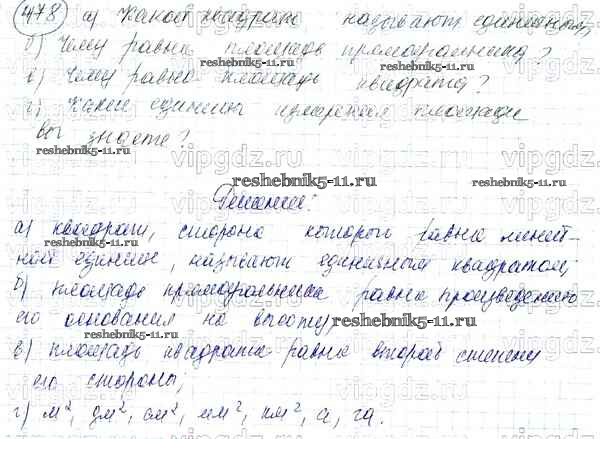 478 а) Какой квадрат называют единичным,
б) Чему равна площадь прямоугольника?
в) Чему равна площадь квадрата?
г) Какие единицы измерения площади
вы знаете?
Решение:
а) квадрат, сторона которого равна линей-
ной единице, называют единичным квадратом;
б) площадь прямоугольника равна произведению
его основания на высоту;
в) площадь квадрата равна второй степени
его стороны;
г) м², дм², см², мм², км², а, га.
reshebnik5-11.ru
reshebnik5-11.ru
reshebnik5-11.ru
reshebnik5-11.ru
reshebnik5-11.ru
reshebnik5-11.ru
reshebnik5-11.ru
reshebnik5-11.ru
vipgdz.ru
vipgdz.ru
vipgdz.ru